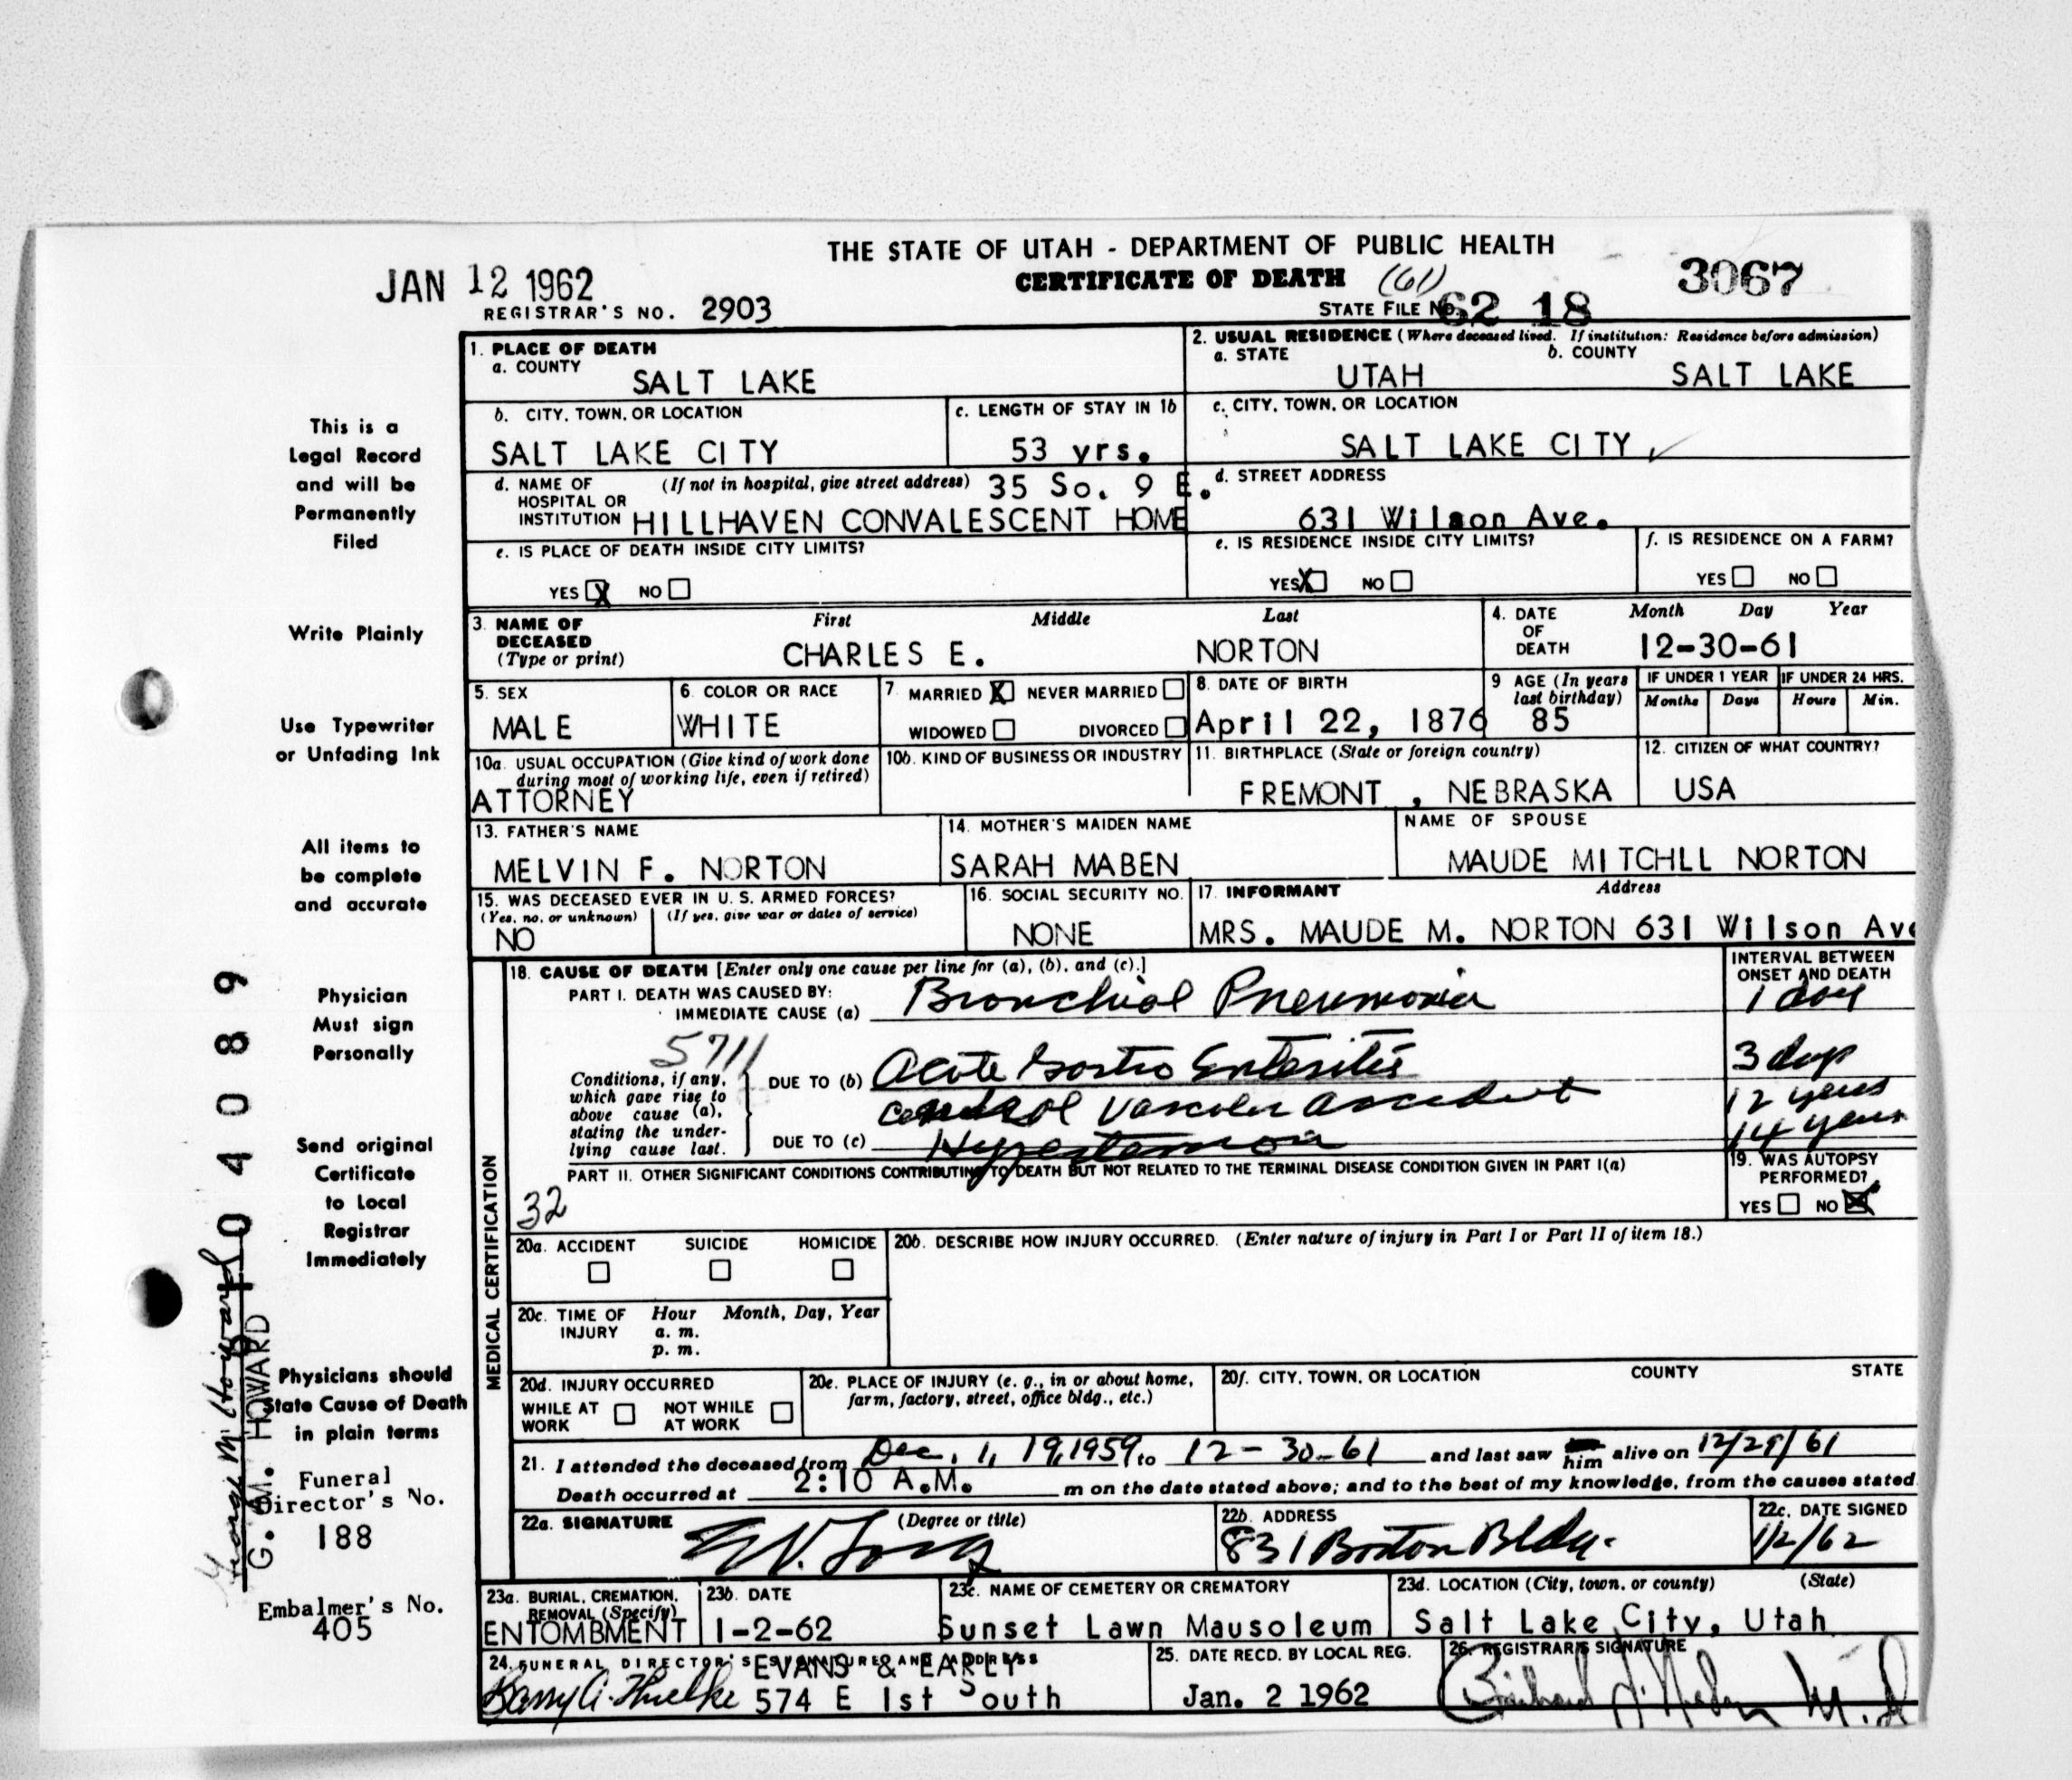 THE STATE OF UTAH - DEPARTMENT OF PUBLIC HEALTH
JAN 12 1962
CERTIFICATE OF DEATH (61)
3067
REGISTRAR'S NO. 2903
STATE FILE No. 62 18
1. PLACE OF DEATH
a. COUNTY
SALT LAKE
2. USUAL RESIDENCE (Where deceased lived. If institution: Residence before admission)
a. STATE
UTAH
b. COUNTY
SALT LAKE
b. CITY, TOWN, OR LOCATION
SALT LAKE CITY
c. LENGTH OF STAY IN 1b
53 yrs.
c. CITY, TOWN, OR LOCATION
SALT LAKE CITY
d. NAME OF HOSPITAL OR INSTITUTION
(If not in hospital, give street address) 35 So. 9 E.
HILLHAVEN CONVALESCENT HOME
d. STREET ADDRESS
631 Wilson Ave.
e. IS PLACE OF DEATH INSIDE CITY LIMITS?
YES X NO
e. IS RESIDENCE INSIDE CITY LIMITS?
YES X NO
f. IS RESIDENCE ON A FARM?
YES NO
3. NAME OF DECEASED (Type or print)
First Middle Last
CHARLES E. NORTON
4. DATE OF DEATH
Month Day Year
12-30-61
5. SEX
MALE
6. COLOR OR RACE
WHITE
7. MARRIED X NEVER MARRIED
WIDOWED DIVORCED
8. DATE OF BIRTH
April 22, 1876
9 AGE (In years last birthday)
85
IF UNDER 1 YEAR
Months Days
IF UNDER 24 HRS.
Hours Min.
10a. USUAL OCCUPATION (Give kind of work done during most of working life, even if retired)
ATTORNEY
10b. KIND OF BUSINESS OR INDUSTRY
11. BIRTHPLACE (State or foreign country)
FREMONT , NEBRASKA
12. CITIZEN OF WHAT COUNTRY?
USA
13. FATHER'S NAME
MELVIN F. NORTON
14. MOTHER'S MAIDEN NAME
SARAH MABEN
NAME OF SPOUSE
MAUDE MITCHLL NORTON
15. WAS DECEASED EVER IN U. S. ARMED FORCES?
(Yes, no, or unknown) (If yes, give war or dates of service)
NO
16. SOCIAL SECURITY NO.
NONE
17. INFORMANT Address
MRS. MAUDE M. NORTON 631 Wilson Ave
MEDICAL CERTIFICATION
18. CAUSE OF DEATH [Enter only one cause per line for (a), (b), and (c).]
INTERVAL BETWEEN ONSET AND DEATH
PART I. DEATH WAS CAUSED BY:
IMMEDIATE CAUSE (a) Bronchial Pneumonia 1 day
5711
Conditions, if any, which gave rise to above cause (a), stating the underlying cause last.
DUE TO (b) Acute Gastro Enteritis 3 days
cerebral vascular accident 12 years
DUE TO (c) Hypertension 14 years
PART II. OTHER SIGNIFICANT CONDITIONS CONTRIBUTING TO DEATH BUT NOT RELATED TO THE TERMINAL DISEASE CONDITION GIVEN IN PART I(a)
32
19. WAS AUTOPSY PERFORMED?
YES NO X
20a. ACCIDENT SUICIDE HOMICIDE
20b. DESCRIBE HOW INJURY OCCURRED. (Enter nature of injury in Part I or Part II of item 18.)
20c. TIME OF INJURY
Hour Month, Day, Year
a. m.
p. m.
20d. INJURY OCCURRED
WHILE AT WORK NOT WHILE AT WORK
20e. PLACE OF INJURY (e. g., in or about home, farm, factory, street, office bldg., etc.)
20f. CITY, TOWN, OR LOCATION COUNTY STATE
21. I attended the deceased from Dec. 1, 19,1959 to 12-30-61 and last saw him alive on 12/29/61
Death occurred at 2:10 A.M. m on the date stated above; and to the best of my knowledge, from the causes stated
22a. SIGNATURE (Degree or title)
22b. ADDRESS
831 Boston Bldg.
22c. DATE SIGNED
1/2/62
23a. BURIAL, CREMATION, REMOVAL (Specify)
ENTOMBMENT
23b. DATE
1-2-62
23c. NAME OF CEMETERY OR CREMATORY
Sunset Lawn Mausoleum
23d. LOCATION (City, town, or county) (State)
Salt Lake City, Utah
24. FUNERAL DIRECTOR'S SIGNATURE AND ADDRESS
EVANS & EARLY
574 E 1st South
25. DATE RECD. BY LOCAL REG.
Jan. 2 1962
26. REGISTRAR'S SIGNATURE
This is a
Legal Record
and will be
Permanently
Filed
Write Plainly
Use Typewriter
or Unfading Ink
All items to
be complete
and accurate
Physician
Must sign
Personally
Send original
Certificate
to Local
Registrar
Immediately
Physicians should
State Cause of Death
in plain terms
Funeral
Director's No.
188
Embalmer's No.
405
George M. Howard
G. M. HOWARD
04089